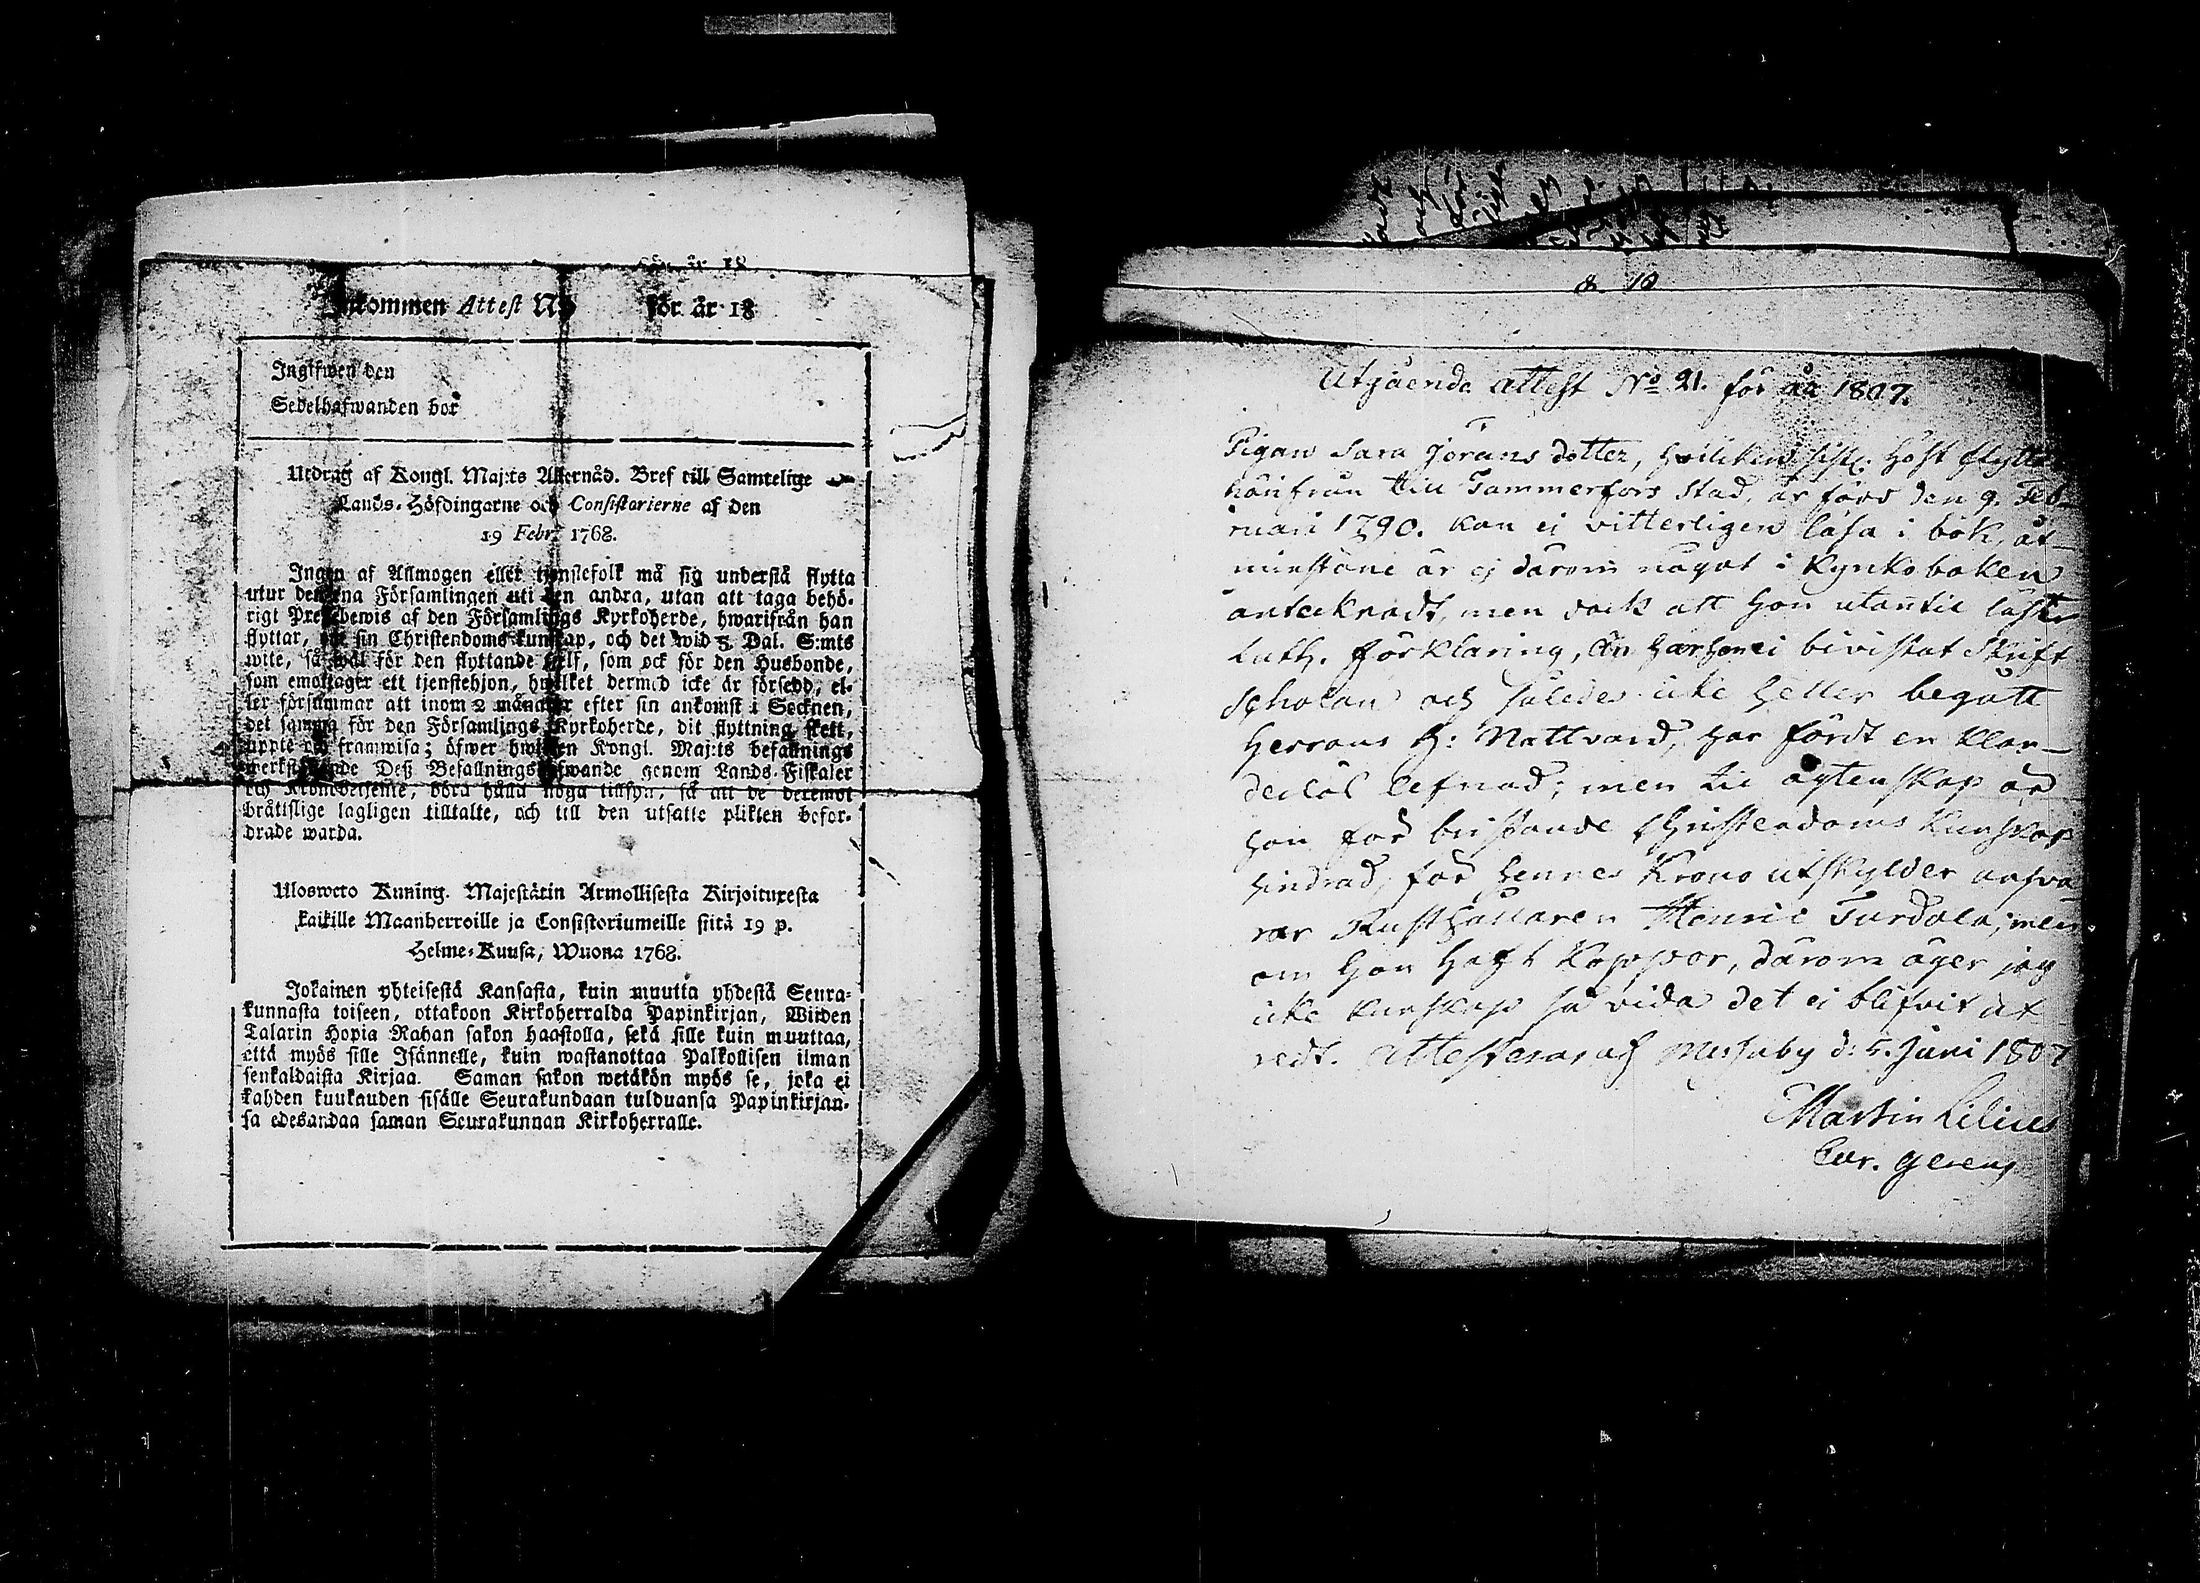 Inkommen Attest No för år 18
Ingifwen den
Sedelhafwanden bor
Utdrag af Kongl. Maj:ts Allernåd. Bref till Samtelige
Lands-Höfdingarne och Consistorierne af den
19 Febr. 1768.
Ingen af Allmogen eller tjenstefolk må sig understå flytta
utur den ena Församlingen uti den andra, utan att taga behö-
rigt Prestbewis af den Församlings Kyrkoherde, hwarifrån han
flyttar, om sin Christendoms kunskap, och det wid 5 Dal. S:mts
wite, så wäl för den flyttande sielf, som ock för den Husbonde,
som emottager ett tjenstehjon, hwilket dermed icke är försedd, el-
ler försummar att inom 2 månader efter sin ankomst i Socknen,
det samma för den Församlings Kyrkoherde, dit flyttning skett,
uppte och framwisa; öfwer hwilken Kongl. Maj:ts befallnings
werkställande Deß Befallningshafwande genom Lands-Fiskaler
och Kronobetjente, böra hålla noga tillsyn, så att de deremot
brätslige lagligen tilltalte, och till den utsatte plikten befor-
drade warda.
Ulosweto Kuning. Majestätin Armollisesta Kirjoituxesta
kaikille Maanherroille ja Consistoriumeille siitä 19 p.
Helme-Kuusa, Wuona 1768.
Jokainen yhteisestä Kansasta, kuin muutta yhdestä Seura-
kunnasta toiseen, ottakoon Kirkoherralda Papinkirjan, Wiiden
Talarin Hopia Rahan sakon haastolla, sekä sille kuin muuttaa,
että myös sille Isännelle, kuin wastanottaa Palkollisen ilman
senkaldaista Kirjaa. Saman sakon wetäkön myös se, joka ei
kahden kuukauden sisälle Seurakundaan tulduansa Papinkirjan-
sa edesandaa saman Seurakunnan Kirkoherralle.
Utgående attest No 21. för år 1807.
Pigan Sara Jöransdotter, hvilken sistl. höst flytte
härifrån till Tammerfors stad, är född den 9. Feb-
ruari 1790. kan ej vitterligen läsa i bok, åt-
minstone är ej därom något i Kyrkoboken
antecknadt, men dock att hon utantil läser
Luth. förklaring, än har hon ei bivistat Skrift
Scholan och således icke heller begått
Herrans H: Nattvard, har fördt en klan-
derlös lefnad; men til ägtenskap är
hon för bristande Christendoms kunskap
hindrad, för hennes Krono utskylder ansva
rar Rusthållaren Henric Turdola; men
om hon haft Koppor, därom äger jag
icke kunskap så vida det ei blifvit ut
redt. attesteras af Messuby d: 5. Juni 1807
Martin Lilius
Cur. gerens